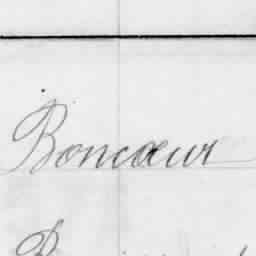 Boncœur